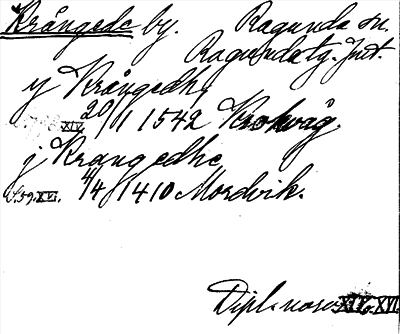 Krångede by. Ragunda sn.
Ragunda tg. Jmt.
y Krångedh,
XIV 20/1 1542 Krokvåg.
j Krangedhe
XVI. 4/4 1410 Mordvik.
Dipl. XIV-XVI